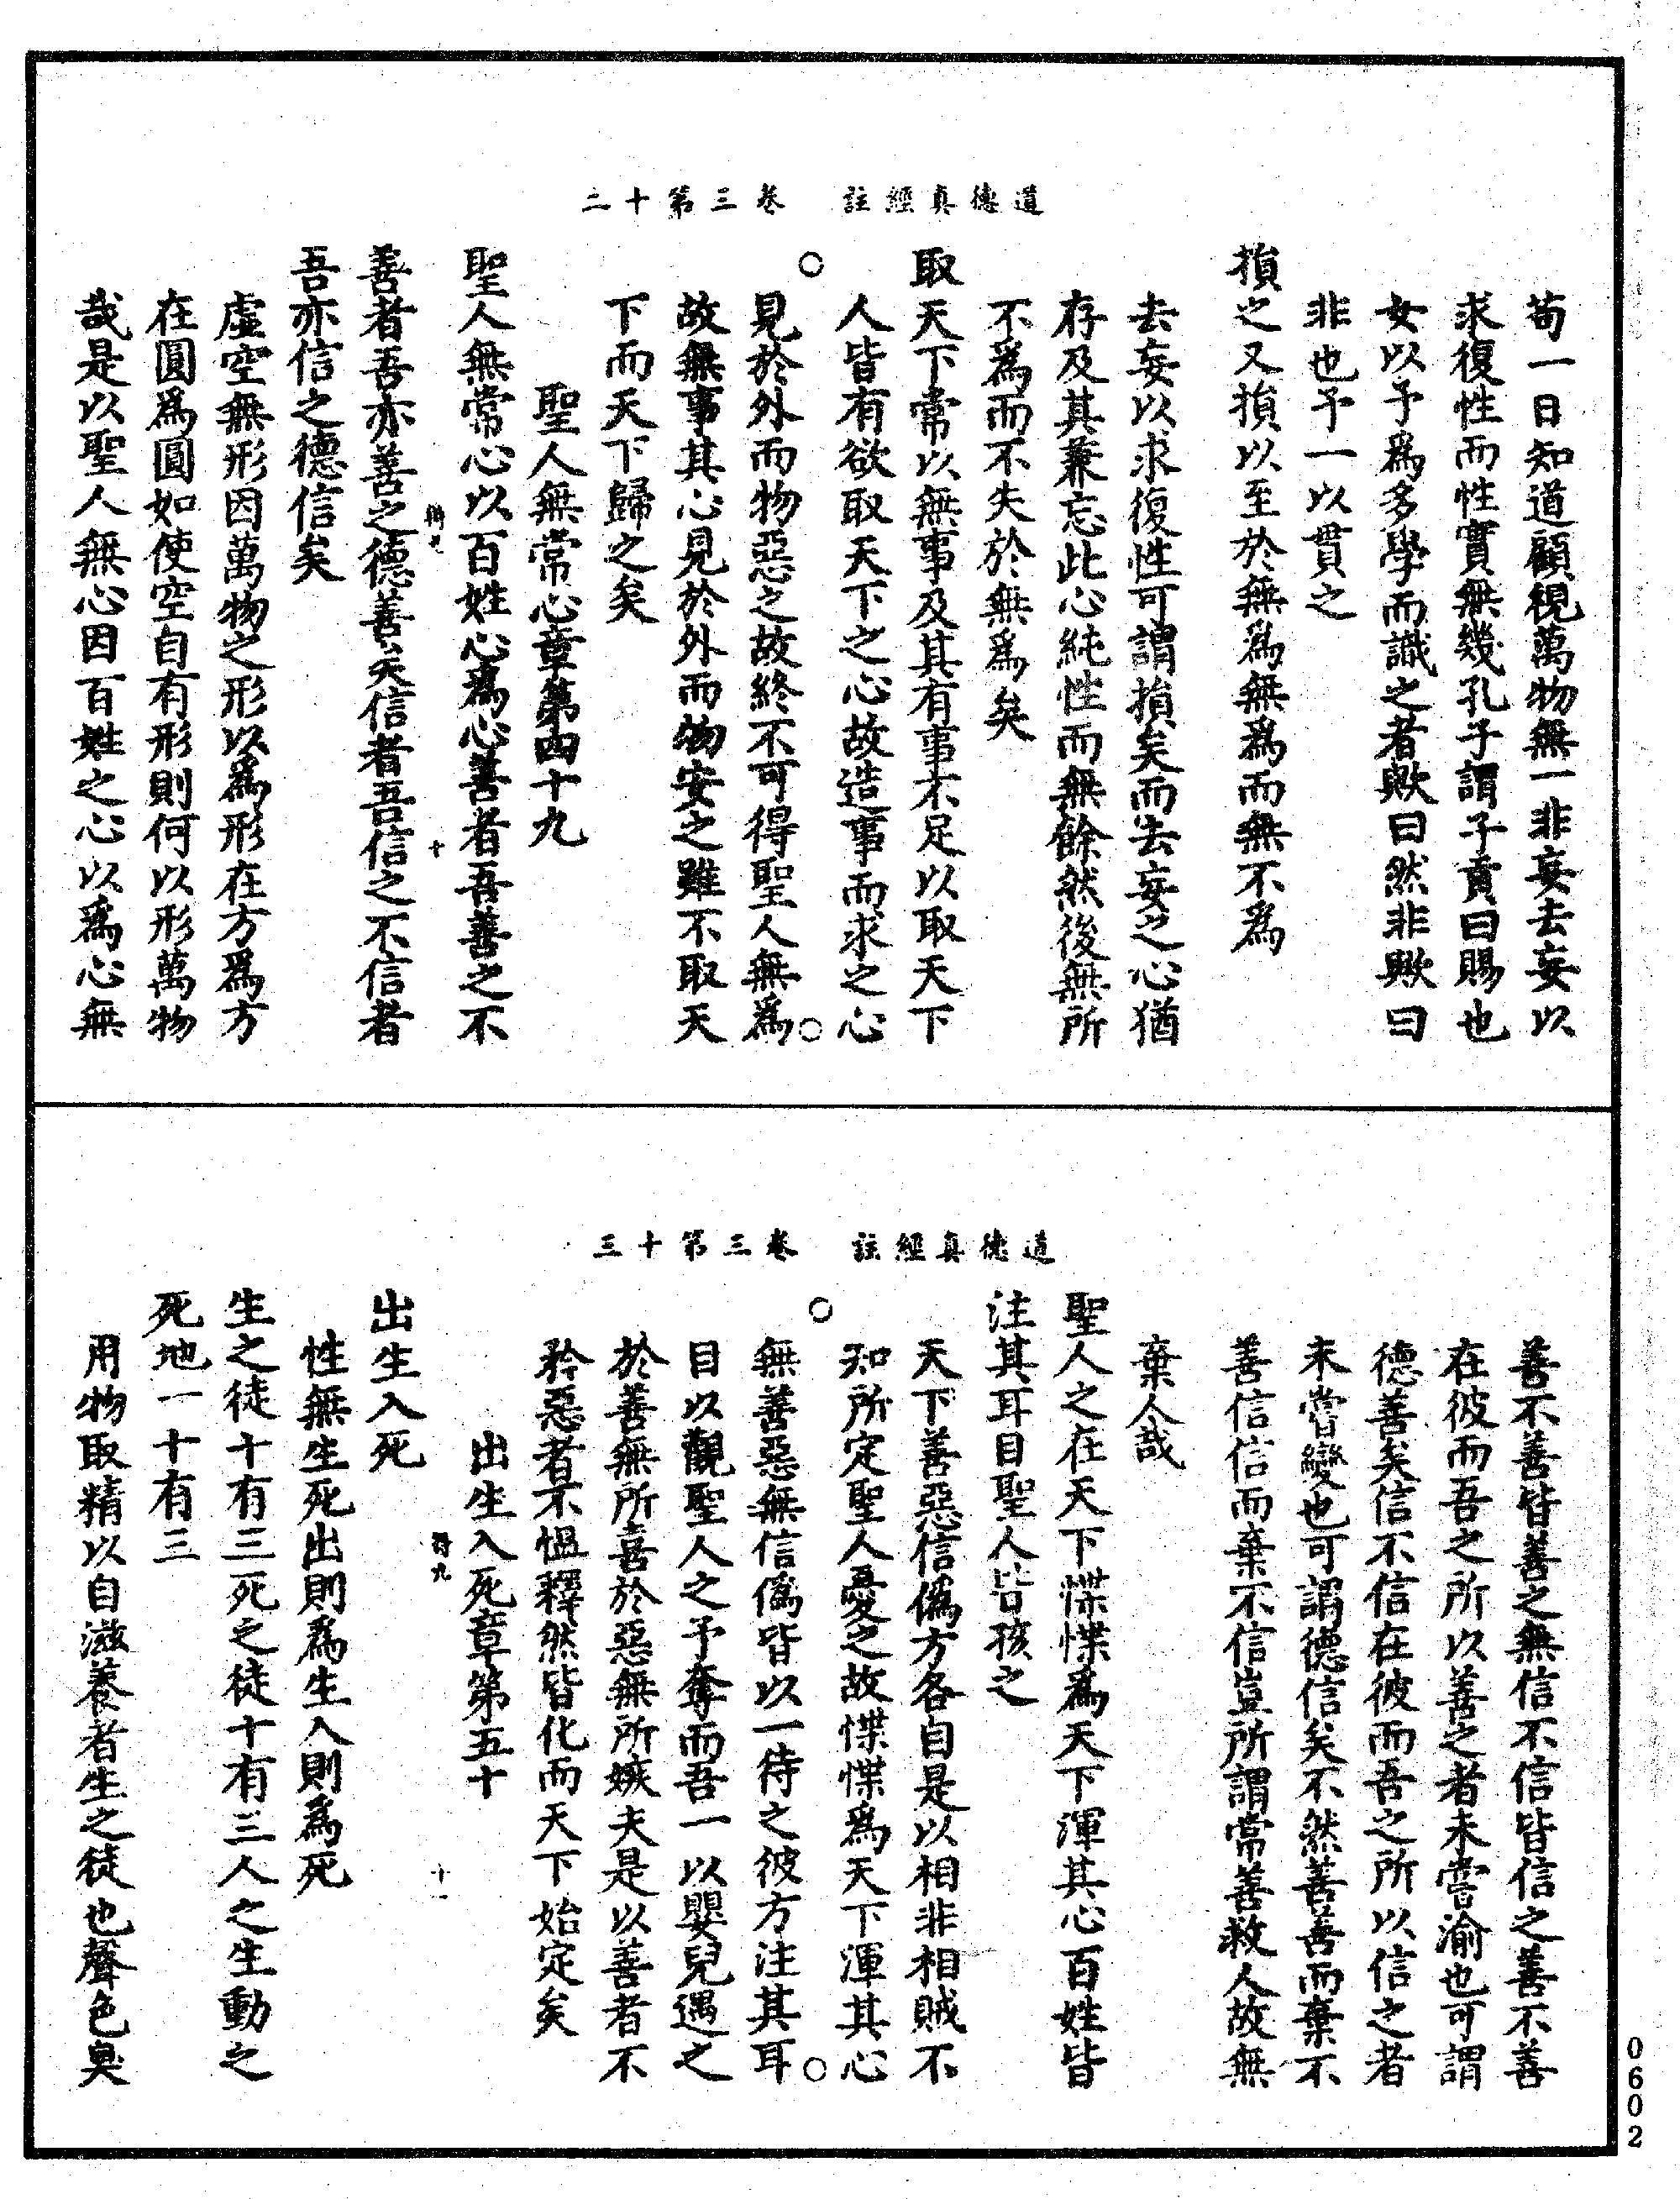 道德真經註　卷三第十二
苟一日知道顧視萬物無一非妄去妄以
求復性而性實無幾孔子謂子貢曰賜也
女以予爲多學而識之者歟曰然非歟曰
非也予一以貫之
損之又損以至於無爲無爲而無不爲
去妄以求復性可謂損矣而去妄之心猶
存及其兼忘此心純性而無餘然後無所
不爲而不失於無爲矣
取天下常以無事及其有事不足以取天下
人皆有欲取天下之心故造事而求之心
見於外而物惡之故終不可得聖人無爲
故無事其心見於外而物安之雖不取天
下而天下歸之矣
聖人無常心章第四十九
聖人無常心以百姓心爲心善者吾善之不
十
善者吾亦善之德善矣信者吾信之不信者
吾亦信之德信矣
虛空無形因萬物之形以爲形在方爲方
在圓爲圓如使空自有形則何以形萬物
哉是以聖人無心因百姓之心以爲心無
道德真經註　卷三第十三
善不善皆善之無信不信皆信之善不善
在彼而吾之所以善之者未嘗渝也可謂
德善矣信不信在彼而吾之所以信之者
未嘗變也可謂德信矣不然善善而棄不
善信信而棄不信豈所謂常善救人故無
棄人哉
聖人之在天下惵惵爲天下渾其心百姓皆
注其耳目聖人皆孩之
天下善惡信僞方各自是以相非相賊不
知所定聖人憂之故惵惵爲天下渾其心
無善惡無信僞皆以一待之彼方注其耳
目以觀聖人之予奪而吾一以嬰兒遇之
於善無所喜於惡無所嫉夫是以善者不
矜惡者不慍釋然皆化而天下始定矣
出生入死章第五十
十一
出生入死
性無生死出則爲生入則爲死
生之徒十有三死之徒十有三人之生動之
死地一十有三
用物取精以自滋養者生之徒也聲色臭
0602